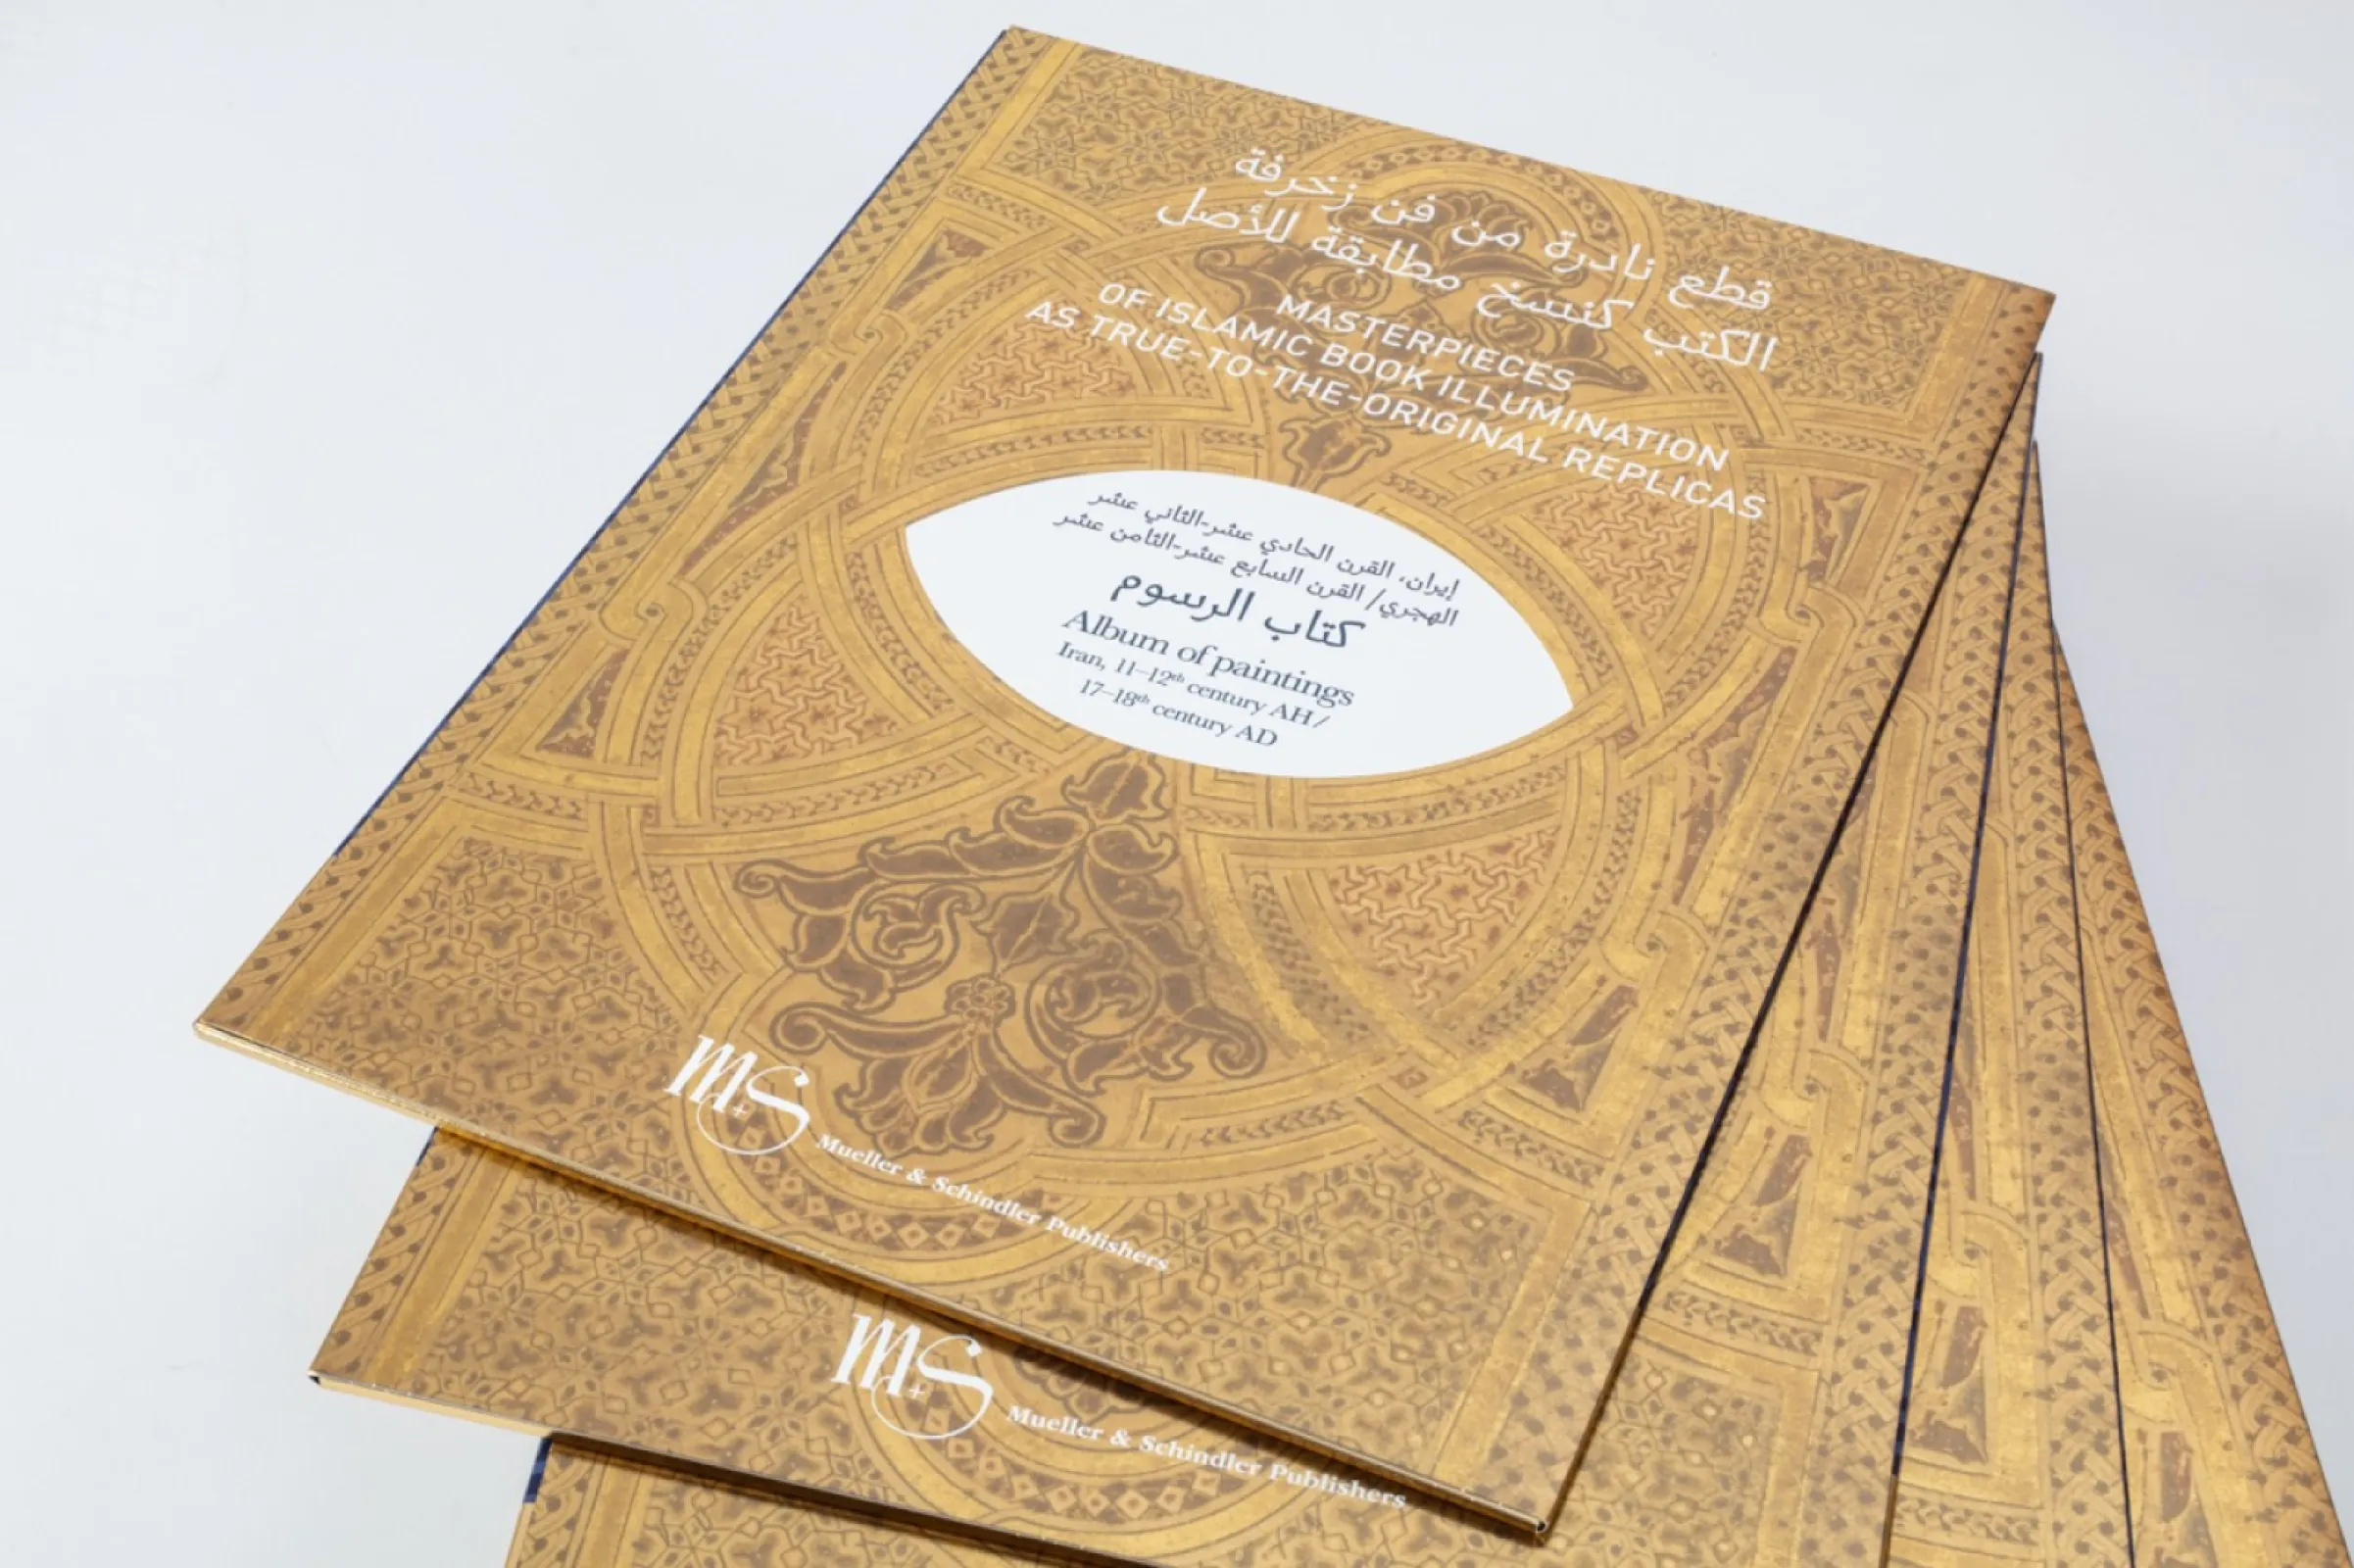 قطع نادرة من فن زخرفة
الكتب كنسخ مطابقة للأصل
MASTERPIECES
OF ISLAMIC BOOK ILLUMINATION
AS TRUE-TO-THE-ORIGINAL REPLICAS
إيران، القرن الحادي عشر-الثاني عشر
الهجري/ القرن السابع عشر-الثامن عشر
كتاب الرسوم
Album of paintings
Iran, 11–12th century AH /
17–18th century AD
M+S Mueller & Schindler Publishers
M+S Mueller & Schindler Publishers